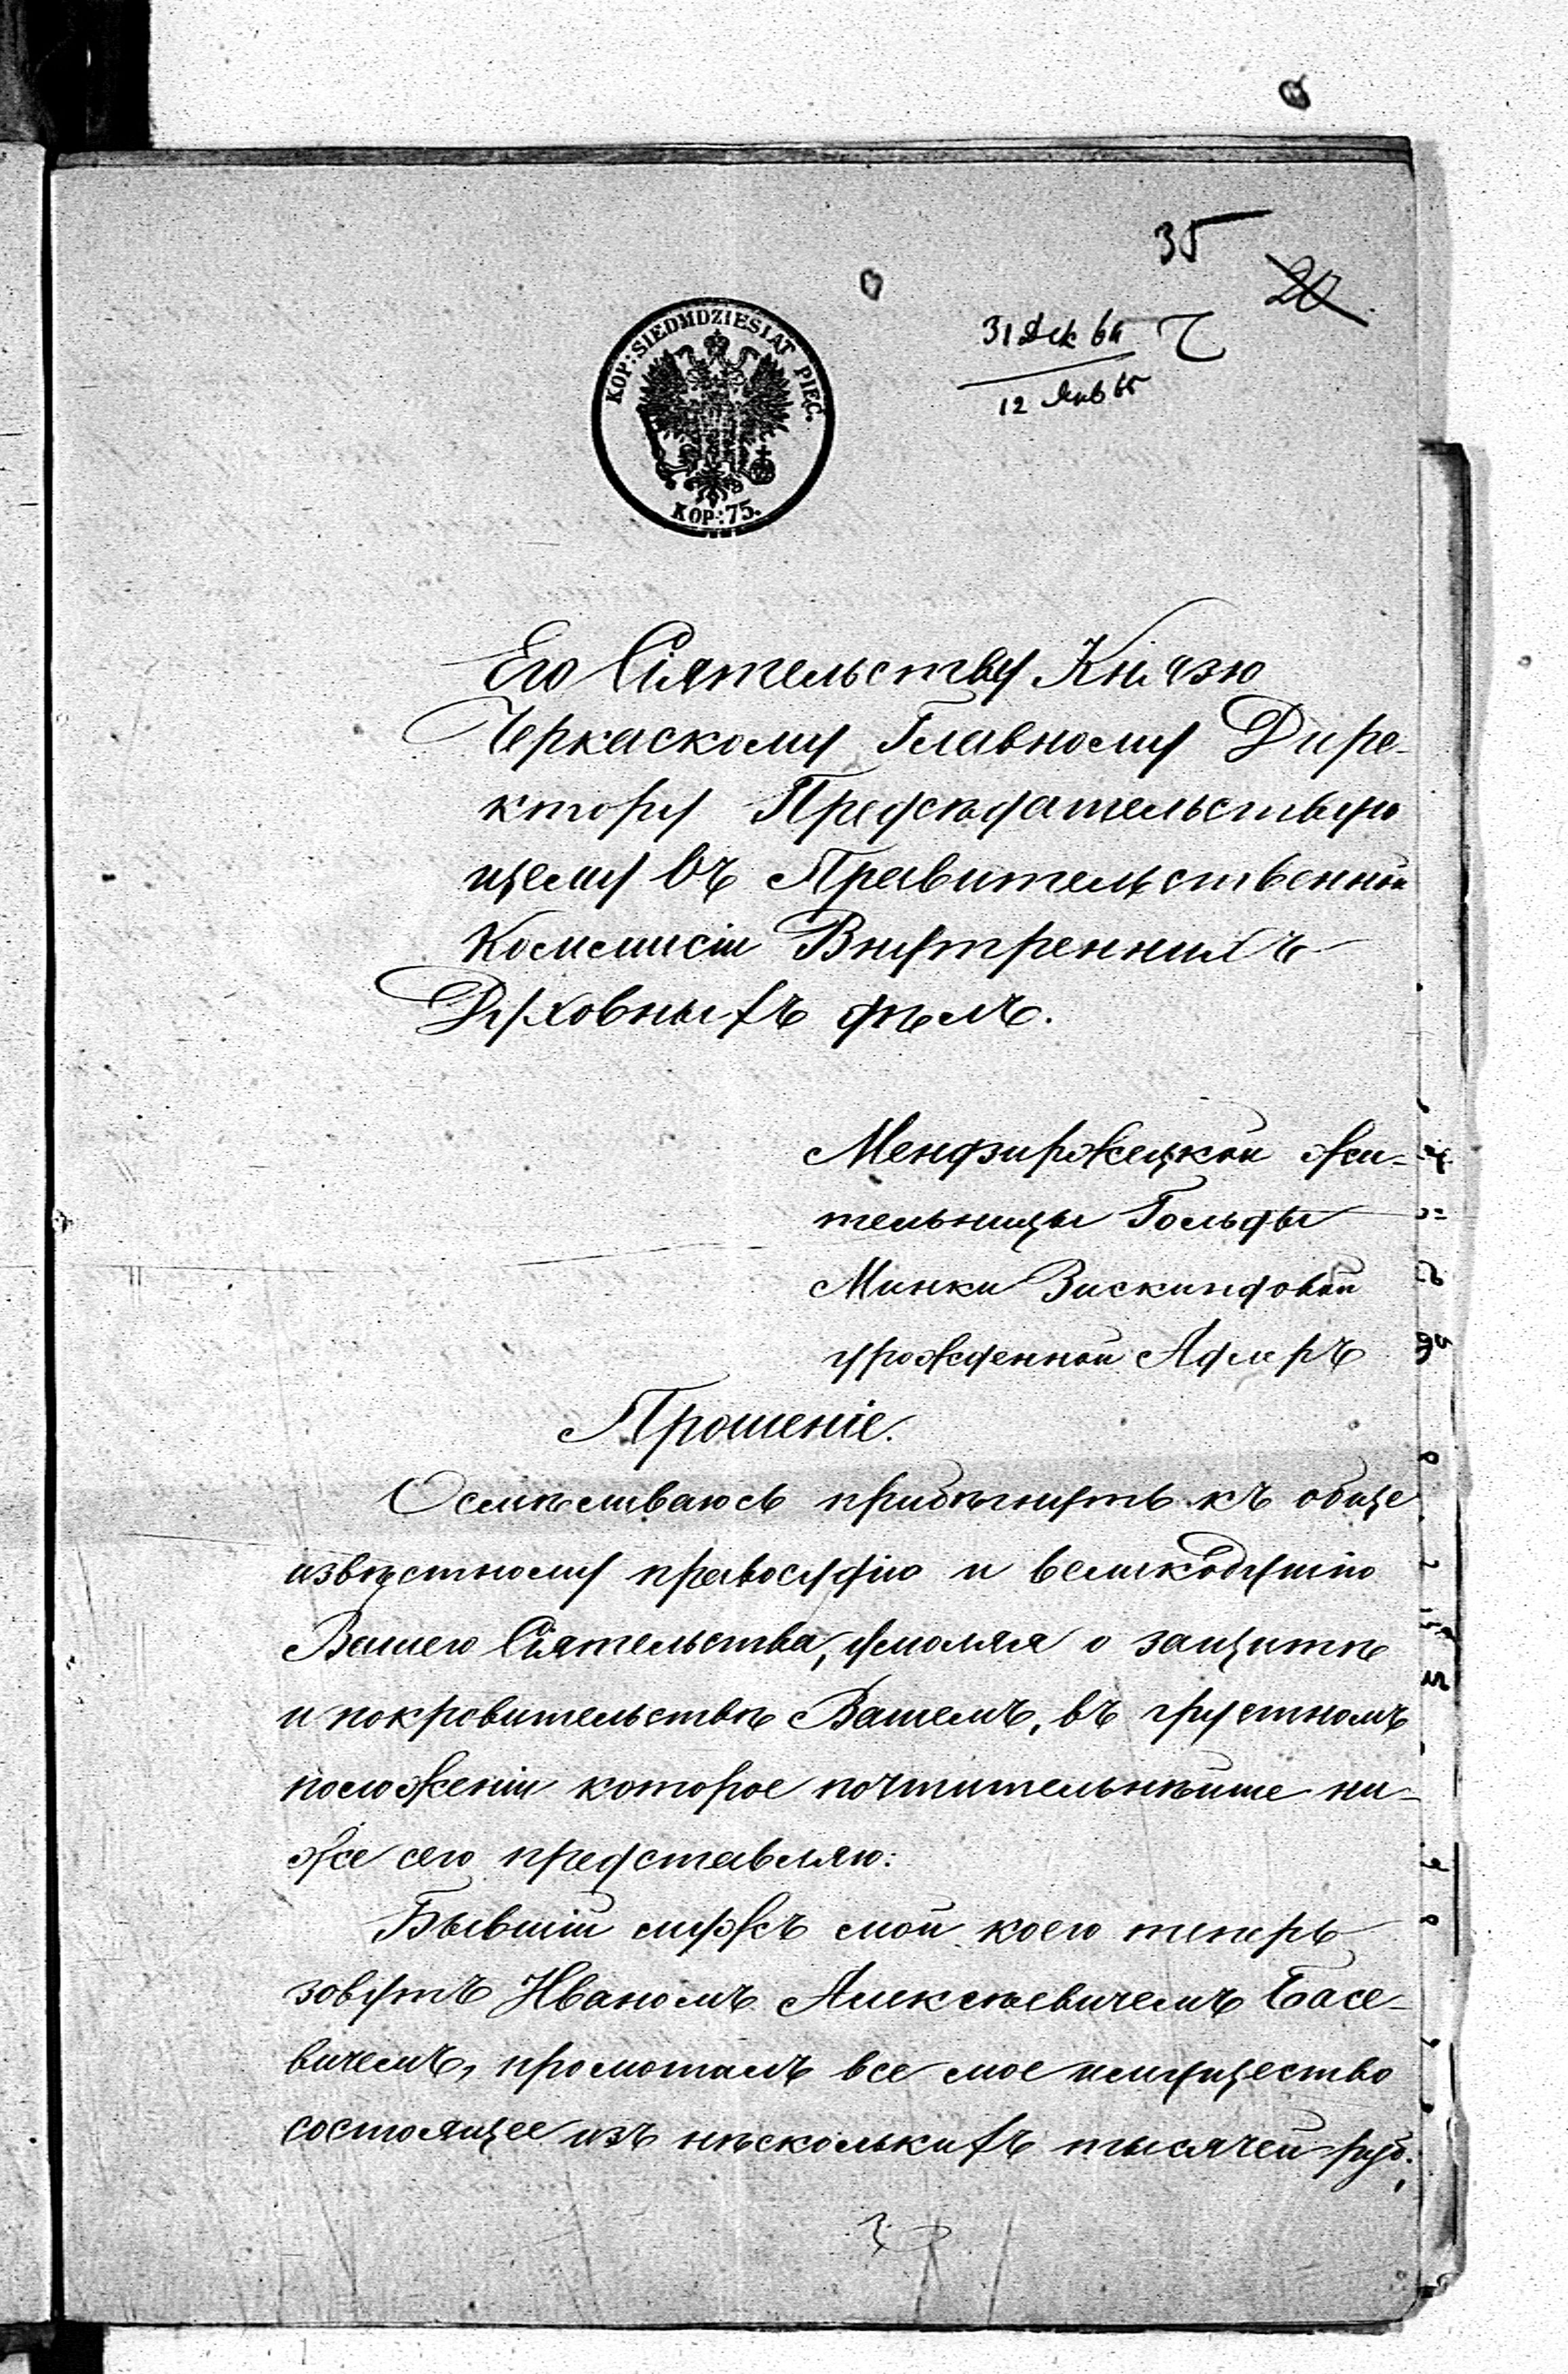 35
20
31 Дек 64
12 Янв 65
KOP: SIEDMDZIESIAT PIĘĆ.
KOP: 75.
Его Сіятельству Князю
Черкаскому Главному Дире-
ктору Предсѣдательствую
щему въ Правительственной
Коммисіи Внутреннихъ
Духовныхъ дѣлъ.
Мендзиржецкой жи-
тельницы Гольды
Минки Зискиндовой
урожденной Адлеръ
Прошеніе.
Осмѣливаюсь прибѣгнуть къ обще
извѣстному правосудію и великодушію
Вашего Сіятельства, умоляя о защитѣ
и покровительствѣ Вашемъ, въ грустномъ
положеніи которое почтительнѣйше ни-
же сего представляю:
Бывшій мужъ мой коего теперь
зовутъ Иваномъ Алексѣевичемъ Басе-
вичемъ, промоталъ все мое имущество
состоящее изъ нѣсколькихъ тысячей руб.,